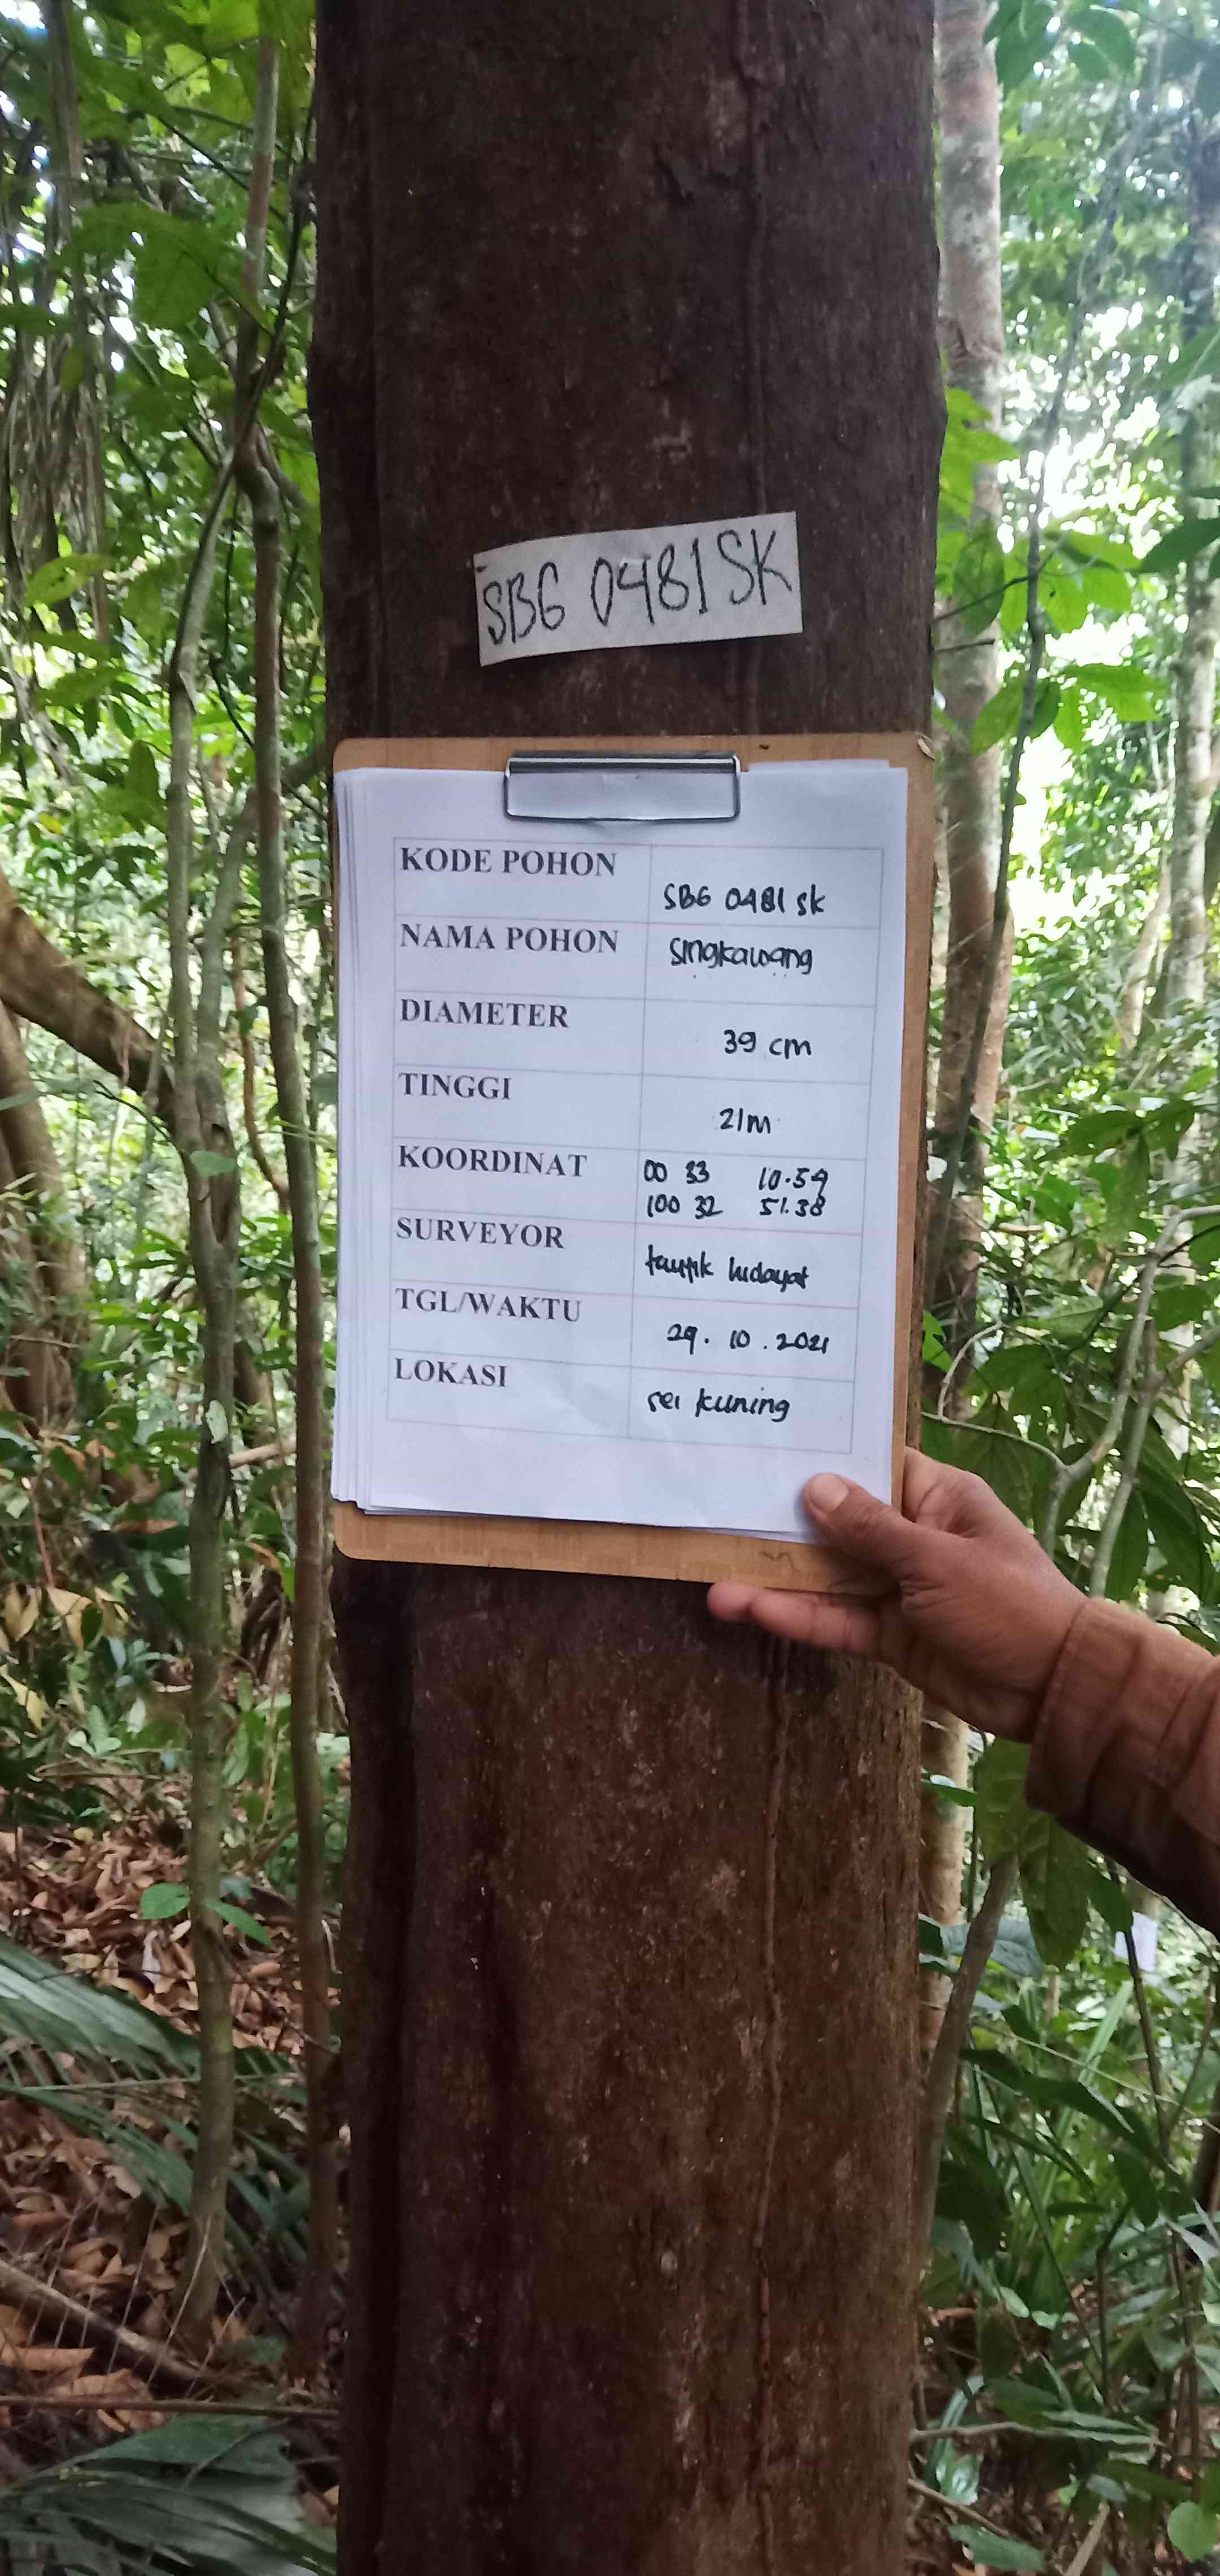 SBG 0481 SK
KODE POHON
SBG 0481 sk
NAMA POHON
singkawang
DIAMETER
39 cm
TINGGI
21m
KOORDINAT
00 33 10.59
100 32 51.38
SURVEYOR
taufik hidayat
TGL/WAKTU
29. 10. 2021
LOKASI
sei kuning